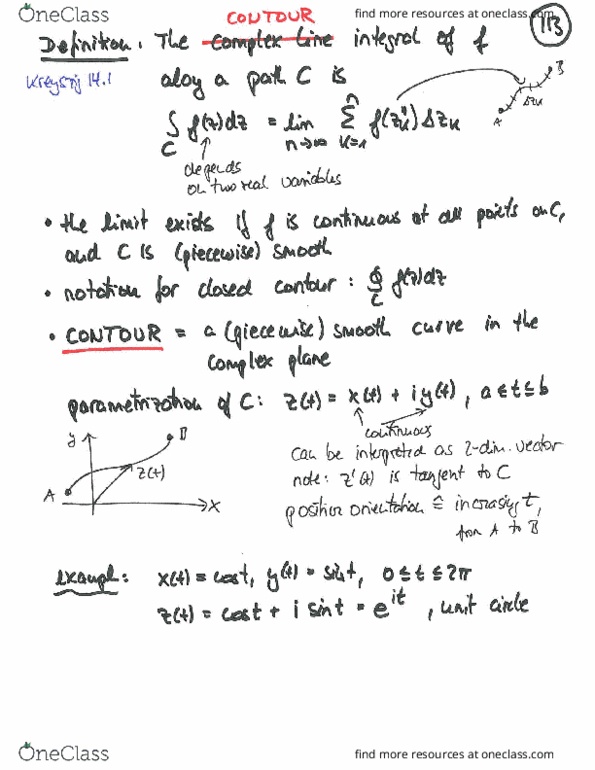 OneClass
find more resources at oneclass.com
113
CONTOUR
Definition. The complex line integral of f
Kreyszig 14.1
along a path C is
∫ f(z)dz = lim Σ f(z_k*) Δz_k
C n→∞ k=1 n
A B Δz_k
depends
on two real variables
• the limit exists if f is continuous at all points on C,
and C is (piecewise) smooth
• notation for closed contour : ∮ f(z)dz
C
• CONTOUR = a (piecewise) smooth curve in the
complex plane
parametrization of C: z(t) = x(t) + i y(t), a ≤ t ≤ b
continuous
y
B
A
z(t)
x
can be interpreted as 2-dim. vector
note: z'(t) is tangent to C
positive orientation ≙ increasing t,
from A to B
example: x(t) = cos t, y(t) = sin t, 0 ≤ t ≤ 2π
z(t) = cos t + i sin t = e^{it}, unit circle
OneClass
find more resources at oneclass.com